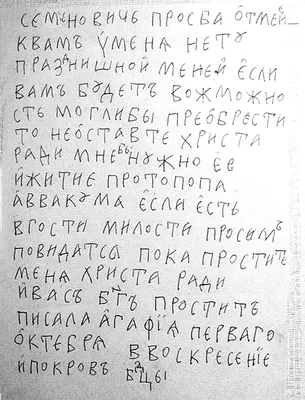 семеновичь просба ѿ мен̑
к вамъ у менѧ нету
празднишной менеи̑ если
вамъ будетъ возможно
сть моглибы преѡбрести
то неѡставте христа
ради мне бы нужно ее
и житие протопопа
аввакума если есть
в гости милости просимъ
повидатсѧ пока простите
менѧ христа ради
и васъ бг҃ъ проститъ
писала агафїѧ перваго
октебрѧ в воскресенїе
и покровъ бц҃ы